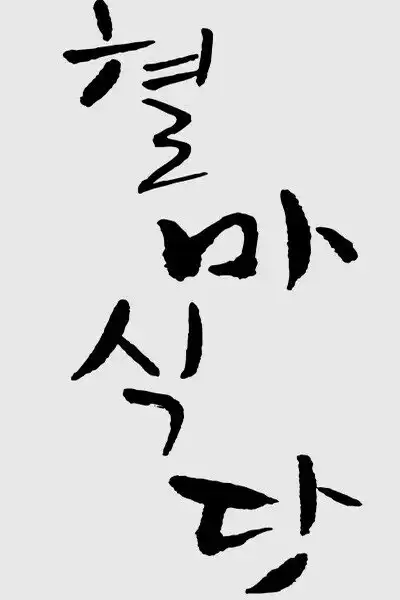 혈
마
식
당